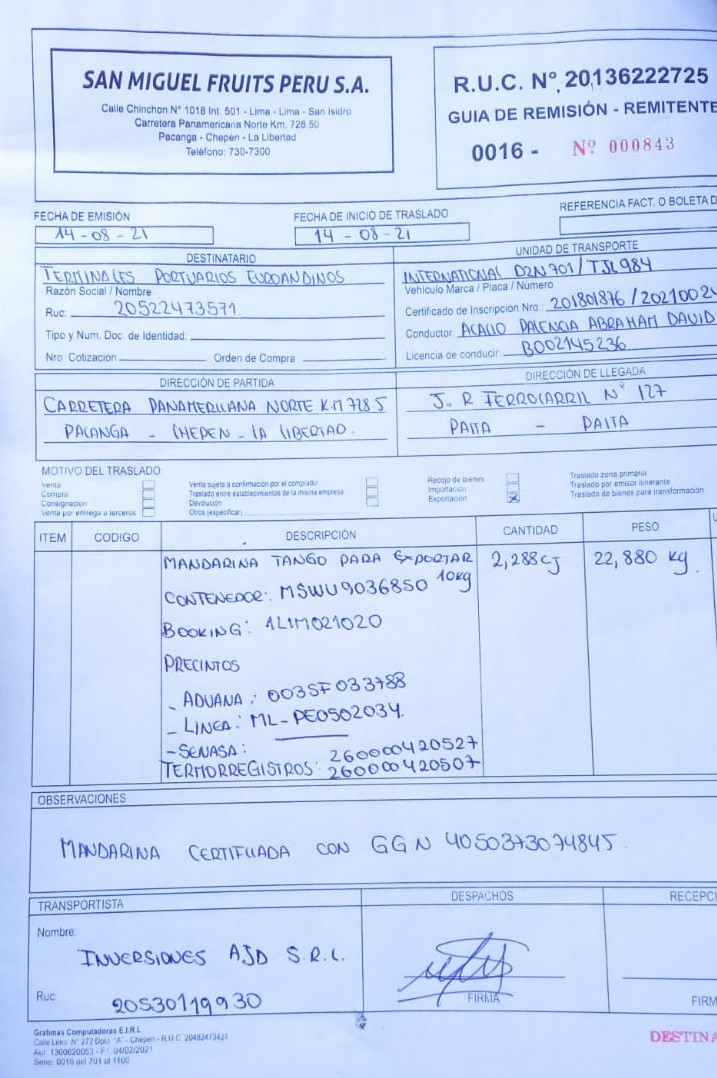 SAN MIGUEL FRUITS PERU S.A.
Calle Chinchon N° 1018 Int. 501 - Lima - Lima - San Isidro
Carretera Panamericana Norte Km. 728.50
Pacanga - Chepen - La Libertad
Teléfono: 730-7300
R.U.C. N°. 20136222725
GUIA DE REMISIÓN - REMITENTE
0016 - Nº 000843
FECHA DE EMISIÓN
14 - 08 - 21
FECHA DE INICIO DE TRASLADO
14 - 08 - 21
REFERENCIA FACT. O BOLETA D
DESTINATARIO
TERMINALES PORTUARIOS EUROANDINOS
Razón Social / Nombre
Ruc: 20522473571
Tipo y Num. Doc. de Identidad:
Nro. Cotización Orden de Compra
UNIDAD DE TRANSPORTE
INTERNATIONAL D2N701/TJL984
Vehículo Marca / Placa / Número
Certificado de Inscripción Nro.: 201801876 / 2021002
Conductor: ACALLO PALENCIA ABRAHAM DAVID
Licencia de conducir: B002145236
DIRECCIÓN DE PARTIDA
CARRETERA PANAMERICANA NORTE KM 728.5
PACANGA - CHEPEN - LA LIBERTAD.
DIRECCIÓN DE LLEGADA
J.. R FERROCARRIL N° 127
PAITA - PAITA
MOTIVO DEL TRASLADO
Venta
Compra
Consignación
Venta por entrega a terceros
Venta sujeta a confirmación por el comprador
Traslado entre establecimientos de la misma empresa
Devolución
Otros (especificar)
Recojo de bienes
Importación
Exportación
Traslado zona primaria
Traslado por emisor itinerante
Traslado de bienes para transformación
ITEM CODIGO DESCRIPCIÓN CANTIDAD PESO
MANDARINA TANGO PARA EXPORTAR 2,288 CJ 22,880 Kg.
10kg
CONTENEDOR: MSWU9036850
BOOKING: 1LIM021020
PRECINTOS
- ADUANA: 003SF033788
- LINEA: ML-PE0502034.
- SENASA:
TERMORREGISTROS: 260000420527
260000420507
OBSERVACIONES
MANDARINA CERTIFICADA CON GGN 4050373074845
TRANSPORTISTA
Nombre:
INVERSIONES AJD S.R.L.
Ruc: 20530119930
DESPACHOS
FIRMA
RECEPCI
FIRM
Grafimas Computadoras E.I.R.L
Calle Lima N° 272 Dpto. "A" - Chepen - R.U.C. 20482473424
Aut. 1300820063 - F.I. 04/02/2021
Serie: 0016 del 701 al 1100
DESTINA